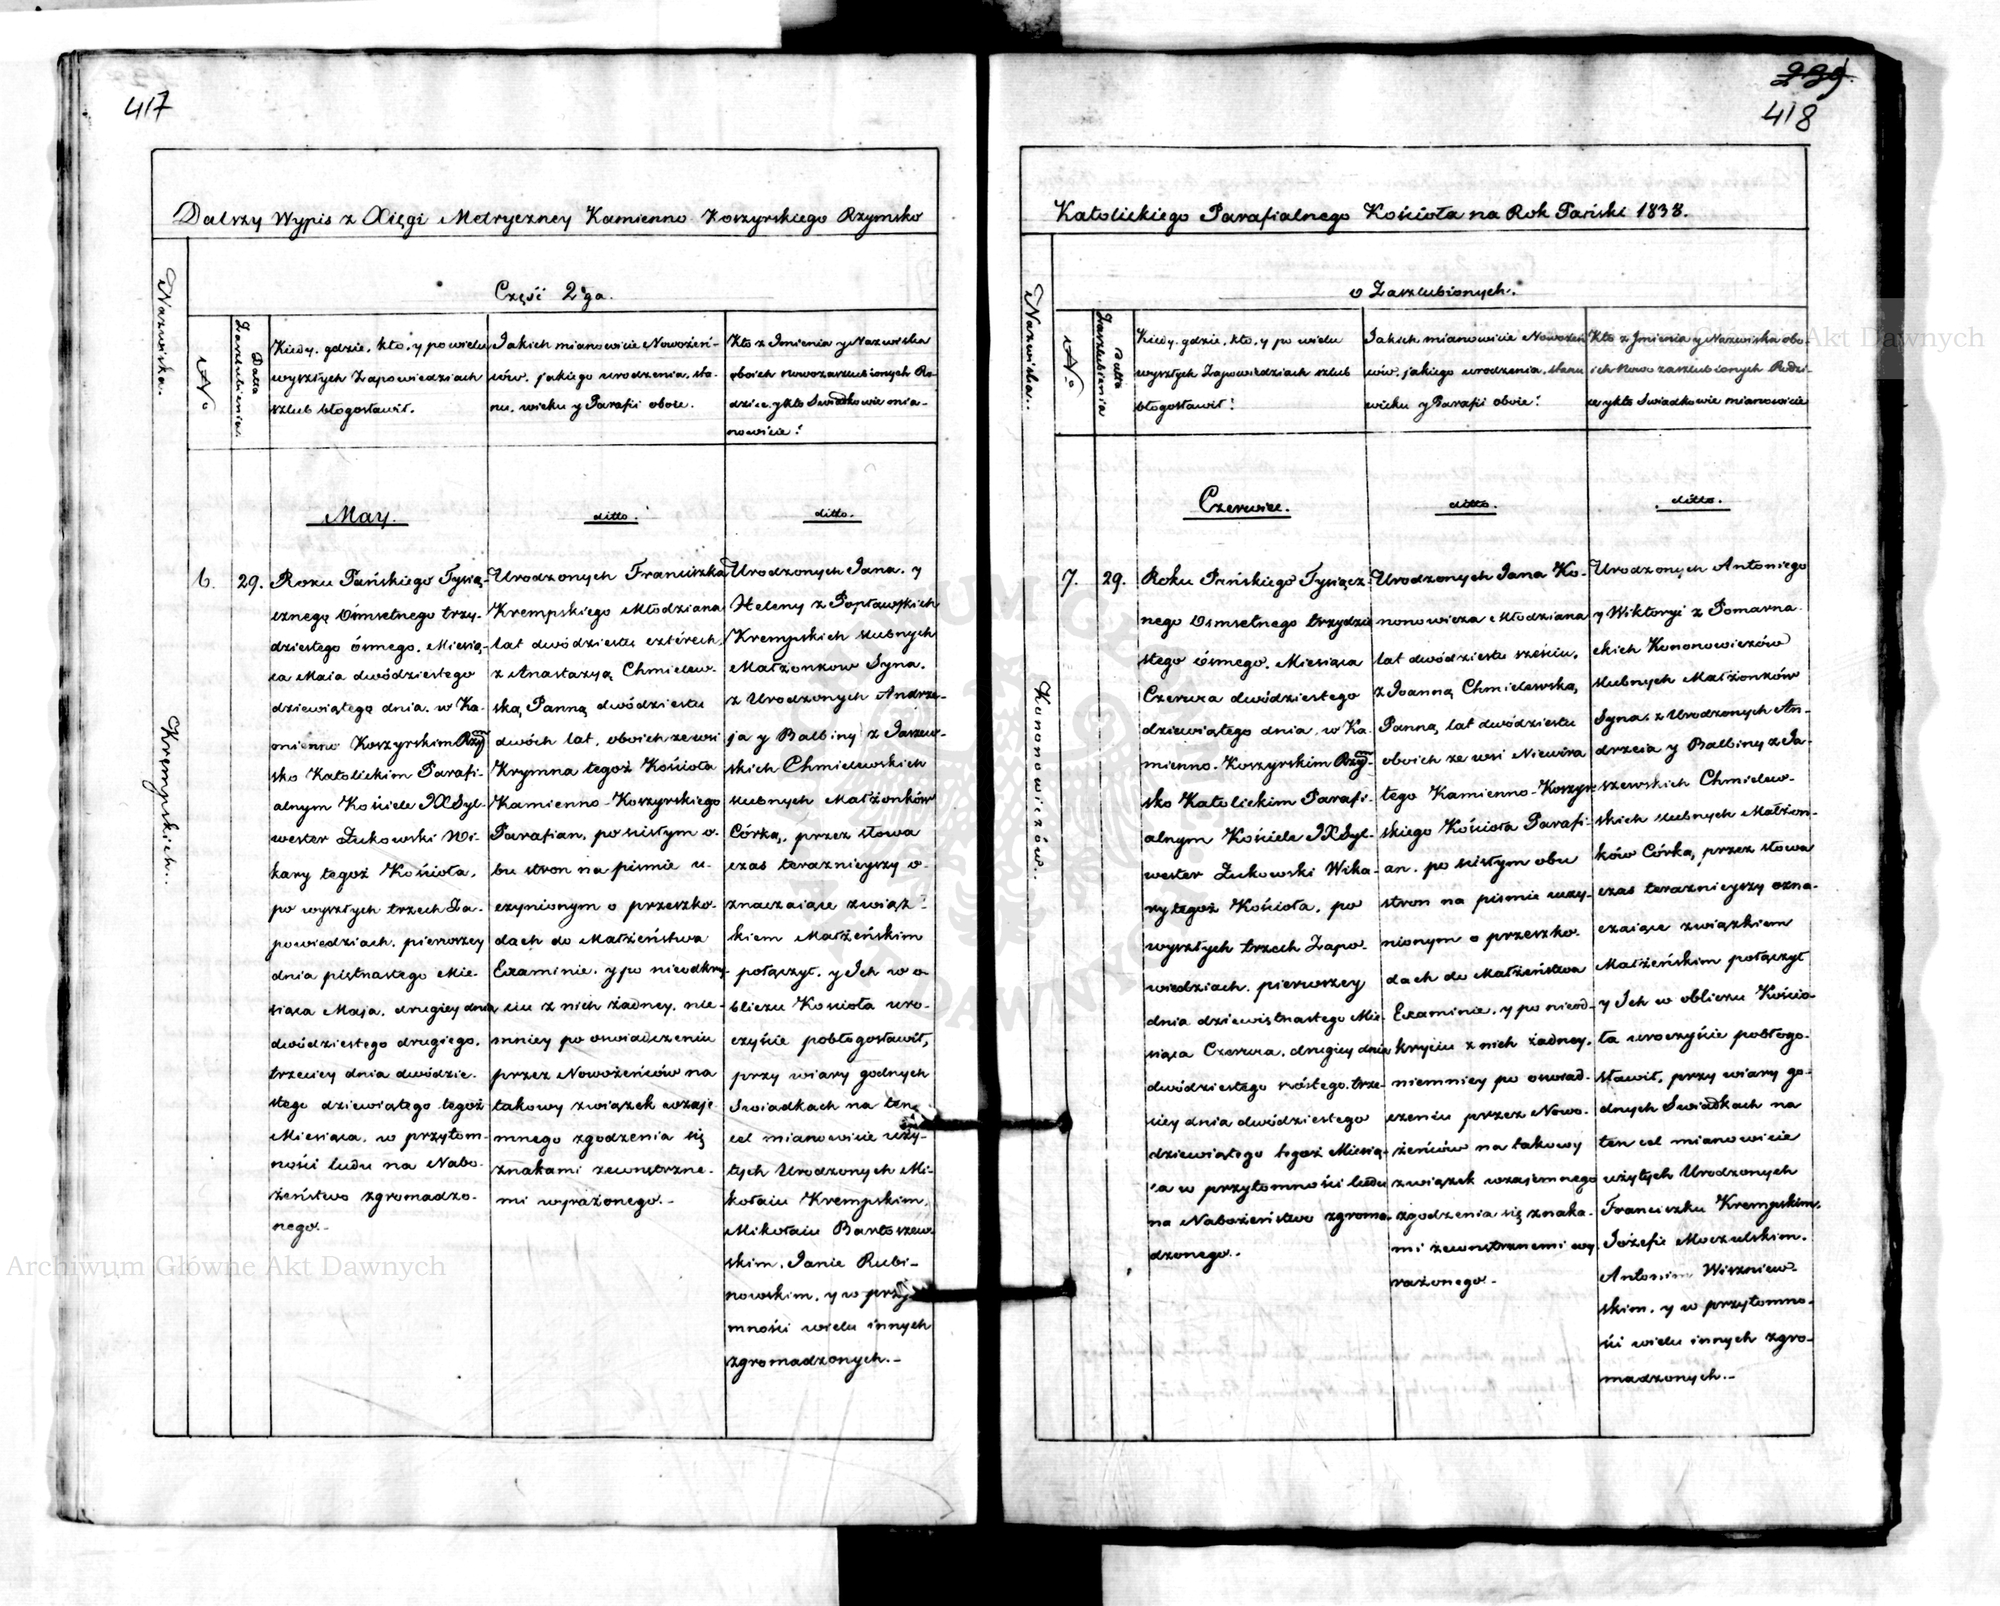 417
Dalszy Wypis z Xięgi Metryczney Kamienno Koszyrskiego Rzymsko
Część 2ga.
Nazwiska.
No
Datta Zaszlubienia.
Kiedy, gdzie, kto, y po wielu
wyszłych Zapowiedziach
szlub błogosławił.
Jakich mianowicie Nowożeń-
ców, jakiego urodzenia, sta-
nu, wieku y Parafii oboie.
Kto z Imienia y Nazwiska
oboich nowozaszlubionych Ro-
dzice, y kto Swiadkowie mia-
nowicie?
May.
ditto.
ditto.
Krempskich...
6.
29.
Roku Pańskiego Tysią-
cznego Osmsetnego trzy-
dziestego ósmego, Miesią-
ca Maia dwódziestego
dziewiątego dnia, w Ka-
mienno Koszyrskim Rzym-
sko Katolickim Parafi-
alnym Kościele JX Syl-
wester Żukowski Wi-
kary tegoż Kościoła,
po wyszłych trzech Za-
powiedziach, pierwszey
dnia piętnastego Mie-
siąca Maja, drugiey dnia
dwódziestego drugiego,
trzeciey dnia dwódzie-
stego dziewiątego tegoż
Miesiąca, w przytom-
ności ludu na Nabo-
żeństwo zgromadzo-
nego.-
Urodzonych Franciszka
Krempskiego Młodziana
lat dwódziestu czterech,
z Anastazyą Chmielew-
ską Panną dwódziestu
dwóch lat, oboich ze wsi
Krymna tegoż Kościoła
Kamienno-Koszyrskiego
Parafian, po scisłym o-
bu stron na pismie u-
czynionym o przeszko-
dach do Małżeństwa
Examinie, y po nieodkry-
ciu z nich żadney, nie-
mniey po oswiadczeniu
przez Nowożeńców na
takowy związek wzaje-
mnego zgodzenia się
znakami zewnętrzne-
mi wyrażonego.-
Urodzonych Jana, y
Heleny z Popławskich
Krempskich szlubnych
Małżonkow Syna,
z Urodzonych Andrze-
ja y Balbiny z Jaszew-
skich Chmielewskich
szlubnych Małżonków
Córką, przez słowa
czas teraznieyszy o-
znaczaiące związ-
kiem Małżeńskim
połączył, y Ich w o-
bliczu Kościoła uro-
czyście pobłogosławił,
przy wiary godnych
Swiadkach na ten
cel mianowicie uży-
tych Urodzonych Mi-
kołaiu Krempskim,
Mikołaiu Bartoszew-
skim, Janie Rubi-
nowskim, y w przy
mności wielu innych
zgromadzonych.-
239.
418
Katolickiego Parafialnego Kościoła na Rok Pański 1838.
o Zaszlubionych.
Nazwiska...
No
Datta Zaszlubienia
Kiedy, gdzie, kto, y po wielu
wyszłych Zapowiedziach szlub
błogosławił?
Jakich mianowicie Nowożeń
ców, jakiego urodzenia, stanu
wieku y Parafii oboie?
Kto z Imienia y Nazwiska obo-
ich nowo zaszlubionych Rodzi-
ce y kto Swiadkowie mianowicie
Czerwiec.
ditto.
ditto.
Kononowiczów...
7.
29.
Roku Pańskiego Tysiącz-
nego Osmsetnego trzydzie
stego ósmego, Miesiąca
Czerwca dwódziestego
dziewiątego dnia, w Ka-
mienno-Koszyrskim Rzym-
sko Katolickim Parafi-
alnym Kościele JX Syl-
wester Żukowski Wika-
ry tegoż Kościoła, po
wyszłych trzech Zapo-
wiedziach, pierwszey
dnia dziewiętnastego Mie-
siąca Czerwca, drugiey dnia
dwódziestego szóstego, trze-
ciey dnia dwódziestego
dziewiątego tegoż Miesią-
ca w przytomności ludu
na Nabożeństwo zgroma-
dzonego.-
Urodzonych Jana Ko-
nonowicza Młodziana
lat dwódziestu sześciu,
z Joanną Chmielewską,
Panną, lat dwódziestu
oboich ze wsi Niewira
tego Kamienno-Koszyr-
skiego Kościoła Parafi-
an, po scisłym obu
stron na pismie uczy-
nionym o przeszko-
dach do Małżeństwa
Examinie, y po nieod-
kryciu z nich żadney,
niemniey po oswiad-
czeniu przez Nowo-
żeńców na takowy
związek wzajemnego
zgodzenia się znaka-
mi zewnętrznemi wy-
rażonego.-
Urodzonych Antoniego
y Wiktoryi z Pomarna-
ckich Kononowiczów
szlubnych Małżonków
Syna, z Urodzonych An-
drzeia y Balbiny z Ja-
szewskich Chmielew-
skich szlubnych Małżon-
ków Córką, przez słowa
czas teraznieyszy ozna-
czaiące związkiem
Małżeńskim połączył
y Ich w obliczu Kościo-
ła uroczyście pobłogo-
sławił, przy wiary go-
dnych Swiadkach na
ten cel mianowicie
użytych Urodzonych
Franciszku Krempskim,
Józefie Moczulskim,
Antonim Wiszniew-
skim, y w przytomno-
ści wielu innych zgro-
madzonych.-
Archiwum Główne Akt Dawnych
Archiwum Główne Akt Dawnych